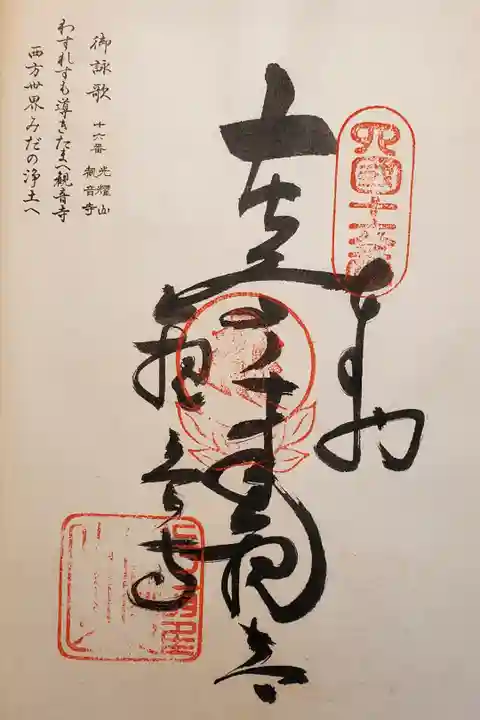 四國十六番
奉納
千手観音
観音寺
御詠歌 十六番 光耀山 観音寺
わすれすも導きたまへ観音寺
西方世界みだの浄土へ